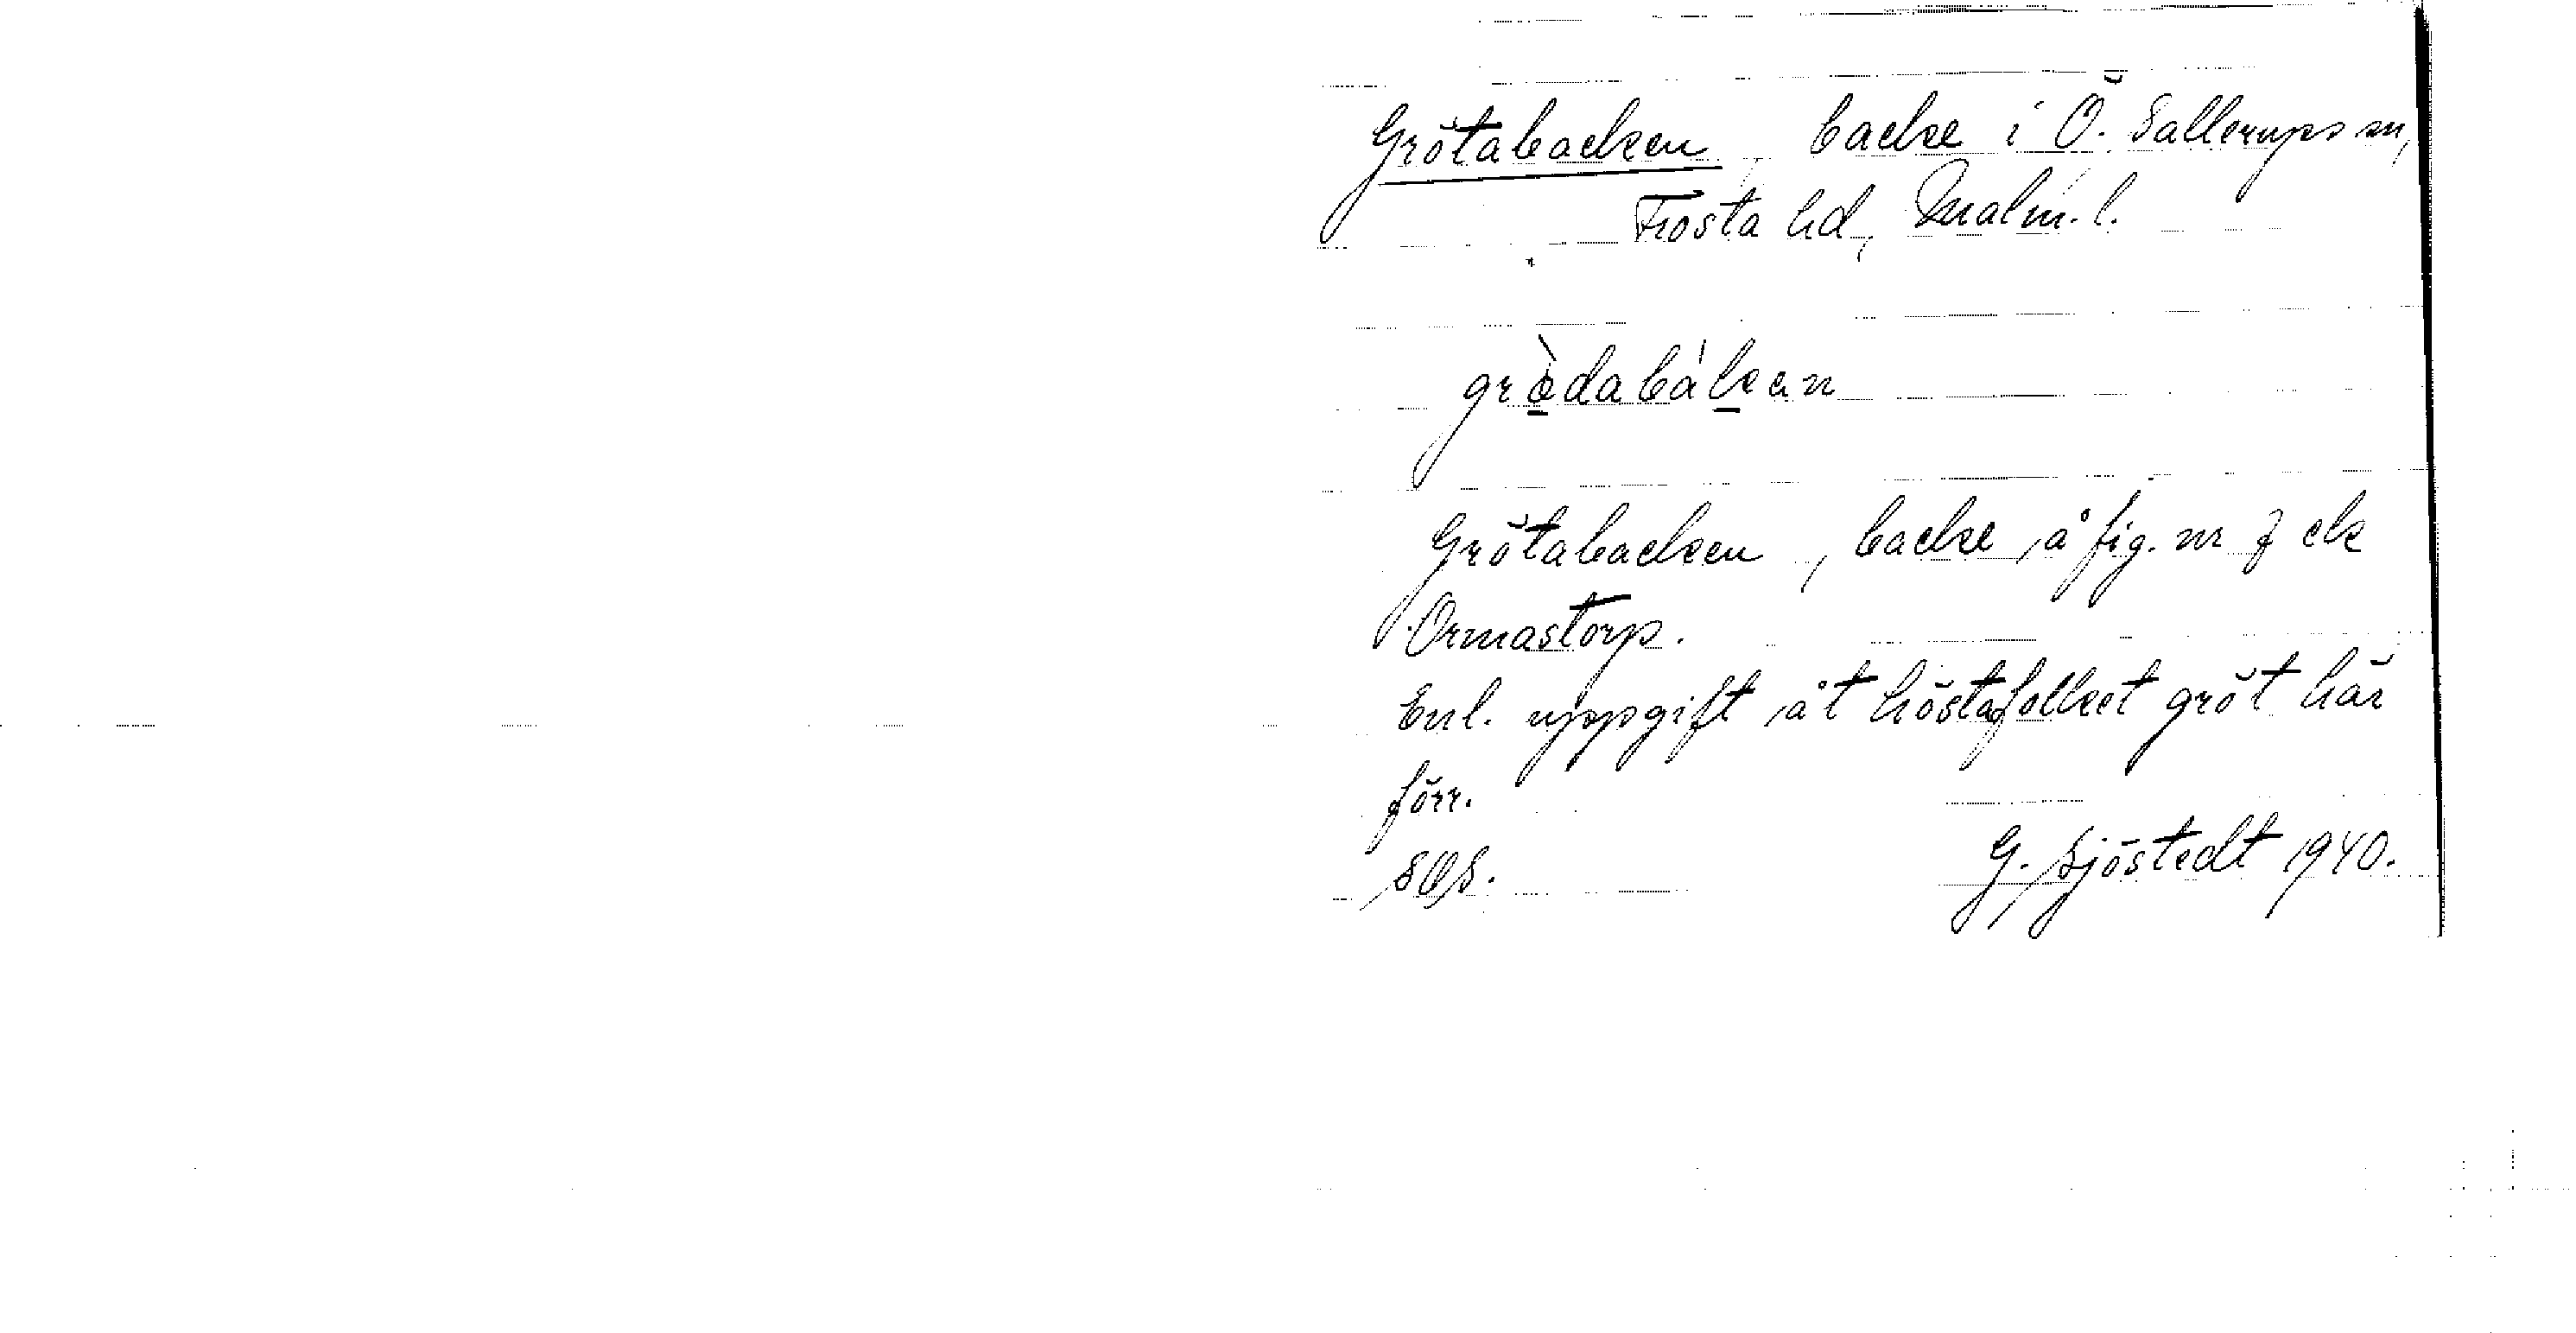 Grötabacken, backe i Ö. Sallerups sn,
Frosta hd, Malm. l.
grǫ̀dabáḵan
Grötabacken, backe å fig. nr 7 ek
Ormastorp.
Enl. uppgift åt höstafolket gröt här
förr.
SOS. G. Sjöstedt 1940.